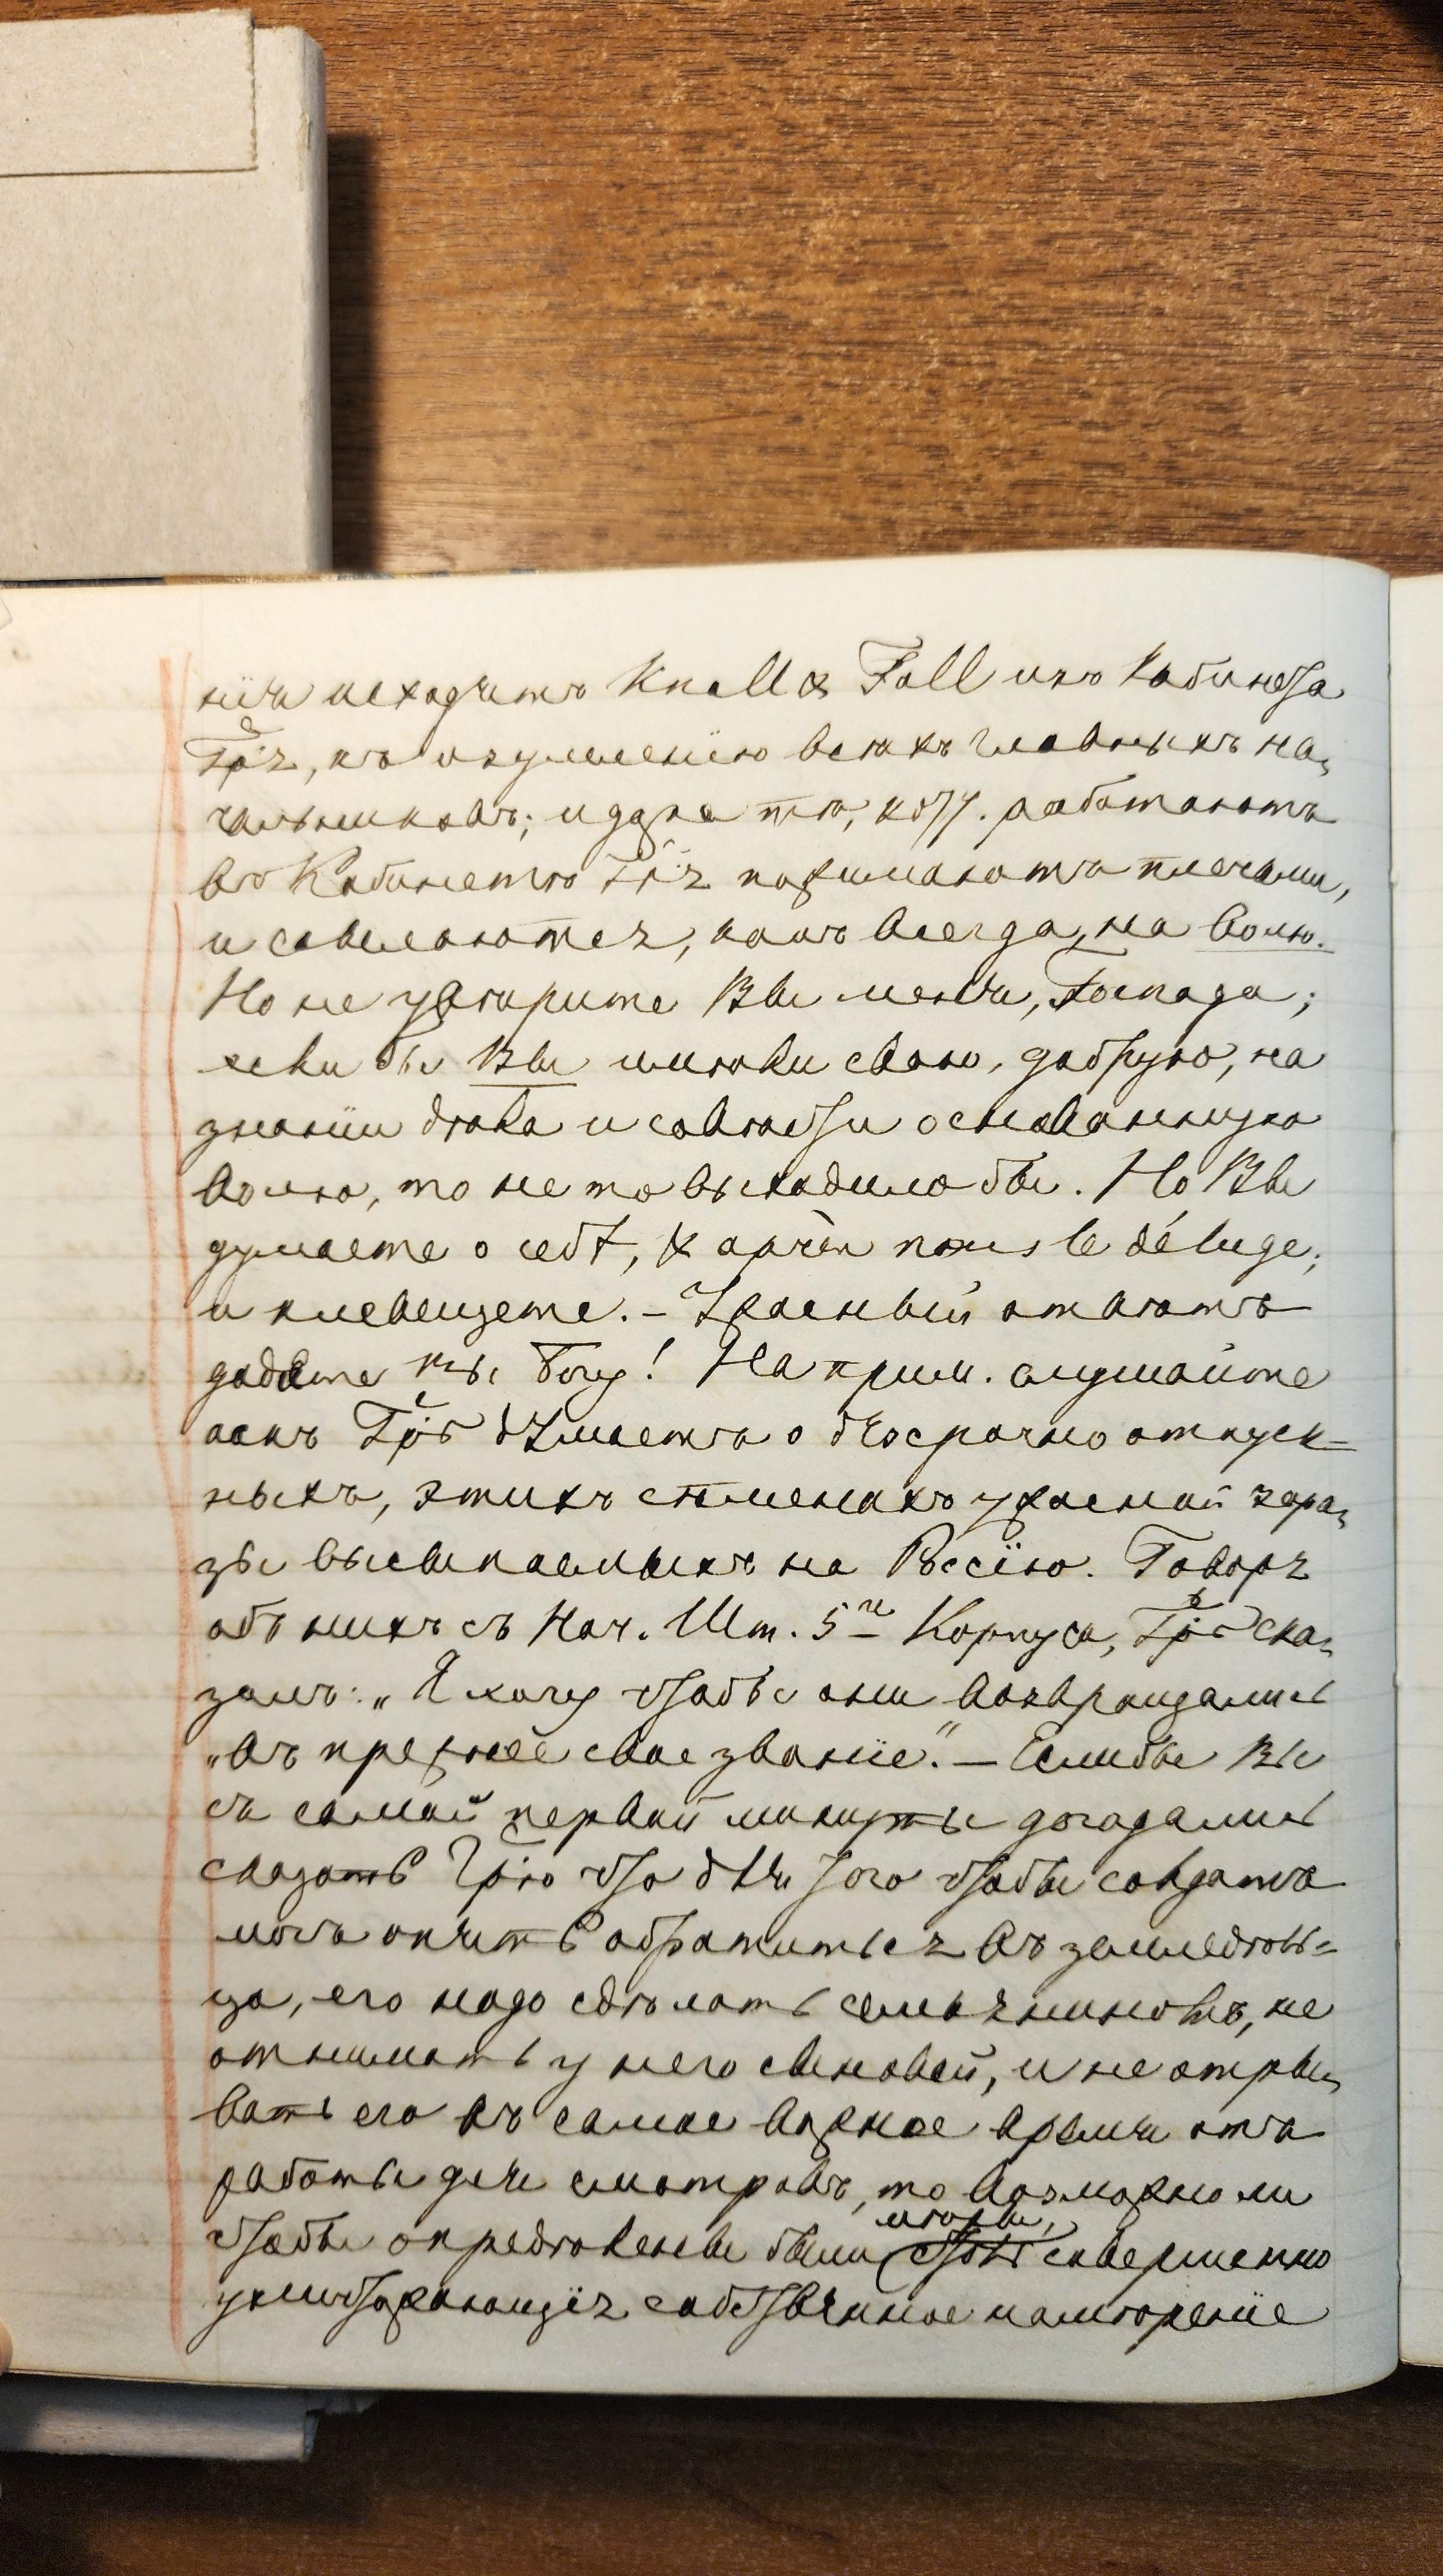 нія исходятъ Knall & Fall изъ Кабинета
Гря, къ изумленію всѣхъ главныхъ на-
чальниковъ; и даже тѣ, котт. работаютъ
въ Кабинетѣ Гря пожимаютъ плечами,
и ссылаются, какъ всегда, на волю.
Но не увѣрите Вы меня, Господа;
если бы Вы имѣли свою, добрую, на
знаніи дѣла и совѣсти основанную
волю, то не то выходило бы. Но Вы
думаете о себѣ, & après nous le déluge;
и клевещете. – Ужасный отвѣтъ
дадите вы Богу! На прим. слушайте
какъ Грь думаетъ о безсрочно отпуск-
ныхъ, этихъ сѣменахъ ужасной зара-
зы высыпаемыхъ на Россію. Говоря
объ нихъ съ Нач. Шт. 5го Корпуса, Грь ска-
залъ: „Я хочу чтобы они возвращались
„въ прежнее свое званіе." – Еслибы Вы
съ самой первой минуты догадались
сказать Грю что для того чтобы солдатъ
могъ опять обратиться въ земледѣль-
ца, его надо сдѣлать семьяниномъ, не
отнимать у него сыновей, и не отры-
вать его въ самое важное время отъ
работы для смотровъ, то возможно ли
чтобы опредѣлены были мѣры, совершенно
уничтожающія собственное намѣреніе